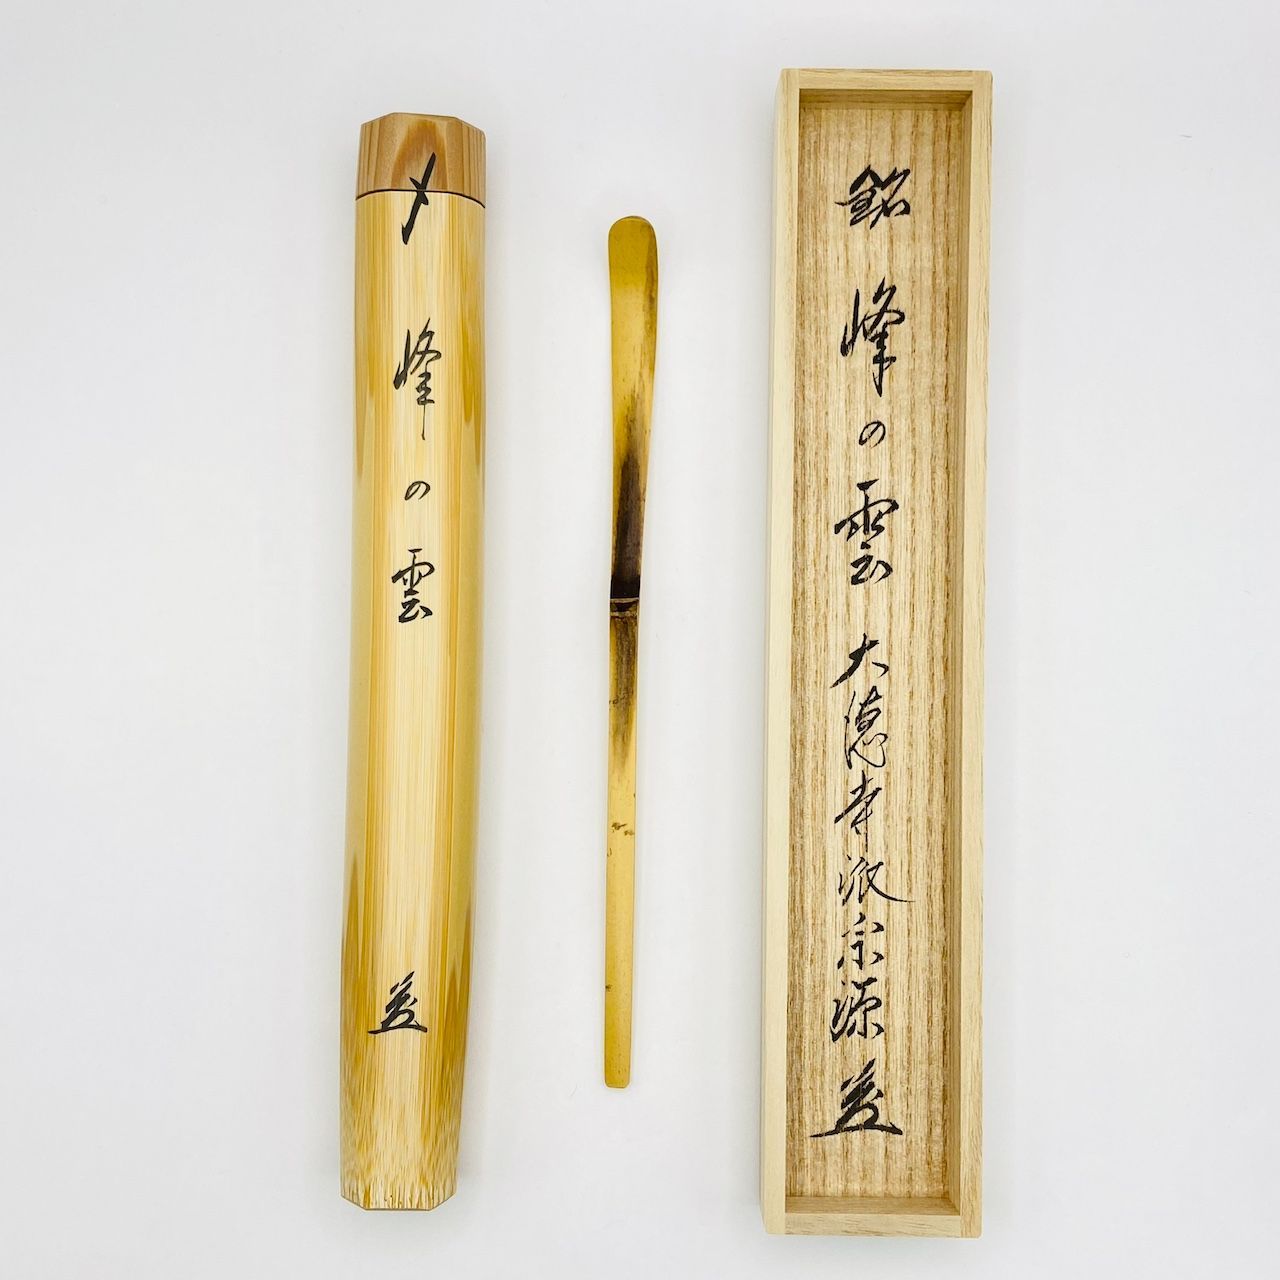 〆
峰の雲
銘 峰の雲 大徳寺派宗源